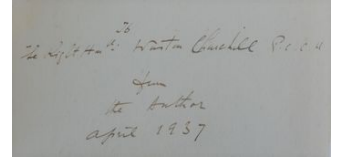 To
The Right Hon. Winston Churchill P.C. C.H.
from
the Author
April 1937